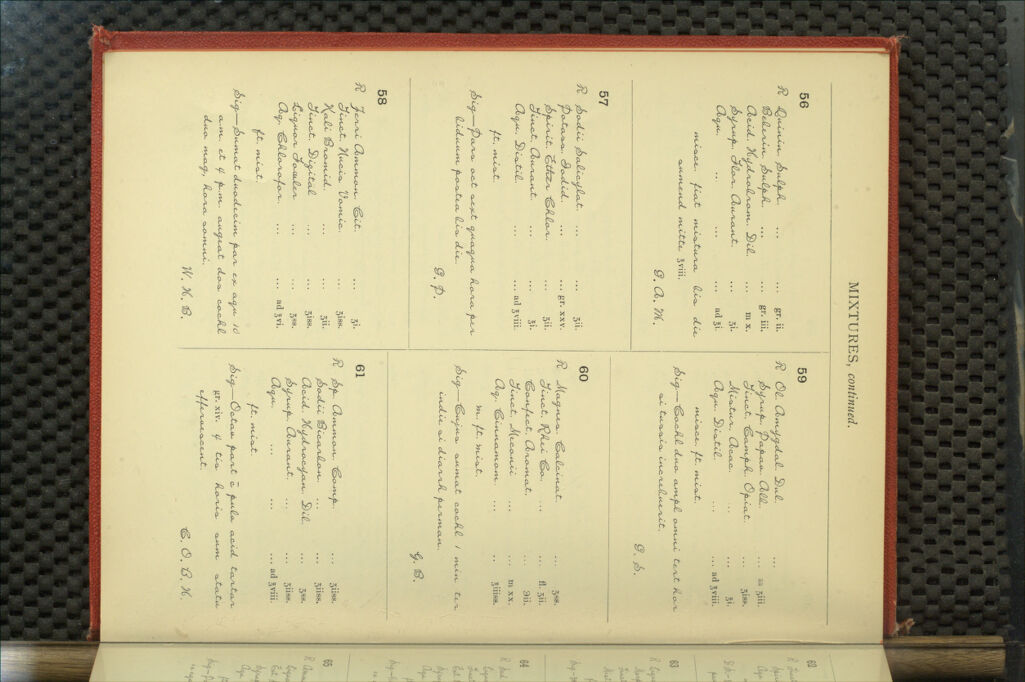 MIXTURES, continued.
56
R Quiniæ Sulph. ... ... gr. ii.
Beberiæ Sulph. ... ... gr. iii.
Acid. Hydrobrom. Dil. ... m x.
Syrup. Flor. Aurant. ... ʒi.
Aqu. ... ... ad ℥i.
misce fiat mistura bis die
sumend mitte ℥viii.
G. A. M.
57
R Sodii Salicylat. ... ... ʒii.
Potass. Iodid. ... ... gr. xxv.
Spirit. Ether Chlor. ... ʒii.
Tinct. Aurant. ... ... ℥i.
Aqu. Distil. ... ... ad ℥viii.
ft. mist.
Sig—Pars oct sext quaqua hora per
biduum postea bis die.
G. P.
58
R Ferri Ammon. Cit. ... ʒi.
Tinct. Nucis Vomic. ... ʒiss.
Kali Bromid. ... ... ʒii.
Tinct. Digital. ... ... ʒiss.
Liquor Fowler. ... ... ʒss.
Aq. Chlorofor. ... ... ad ℥vi.
ft. mist.
Sig—Sumat duodecim par ex aqu 10
a.m. et 4 p.m. augeat dos cochl
duo mag, hora somni.
W. H. B.
59
R Ol. Amygdal Dul. ...
Syrup. Papav Alb. ... aa ʒiii.
Tinct. Camph. Opiat. ... ʒiss.
Mistur. Acac. ... ... ℥i.
Aqu. Distil. ... ... ad ℥viii.
misce ft. mist.
Sig—Cochl duo ampl omni tert hor
si tussis increbuerit.
G. S.
60
R Magnes. Calcinat. ... ʒss.
Tinct. Rhei Co. ... ... fl. ʒii.
Confect. Aromat. ... ℈ii.
Tinct. Meconii ... ... m xx.
Aq. Cinnamom. ... ... ℥iiss.
m. ft. mist.
Sig—Cujus sumat cochl 1 min ter
indie si diarrh perman.
G. B.
61
R Sp. Ammon. Comp. ... ʒiiss.
Sodii Bicarbon. ... ... ʒiiss.
Acid. Hydrocyan. Dil. ... ʒss.
Syrup. Aurant. ... ... ʒiiss.
Aqu. ... ... ... ad ℥viii.
ft mist.
Sig—Octav part c̄ pulv acid tartar
gr. xiv. 4 tis horis sum statu
effervescent.
C. O. B. H.
62
63
64
65